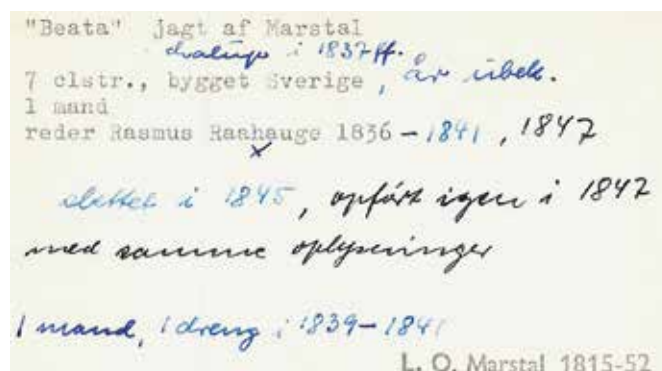 "Beata" jagt af Marstal
chalup i 1837ff.
7 clstr., bygget Sverige, år ubek.
1 mand
reder Rasmus Raahauge 1836 - 1841, 1847
x
slettet i 1845, opført igen i 1847
med samme oplysninger
1 mand, 1 dreng i 1839-1841
L. O. Marstal 1815-52